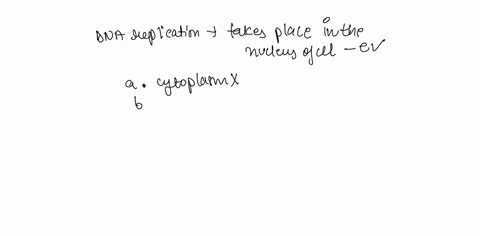 DNA replication → takes place in the
nucleus of cell - e✓
a. cytoplasm X
b